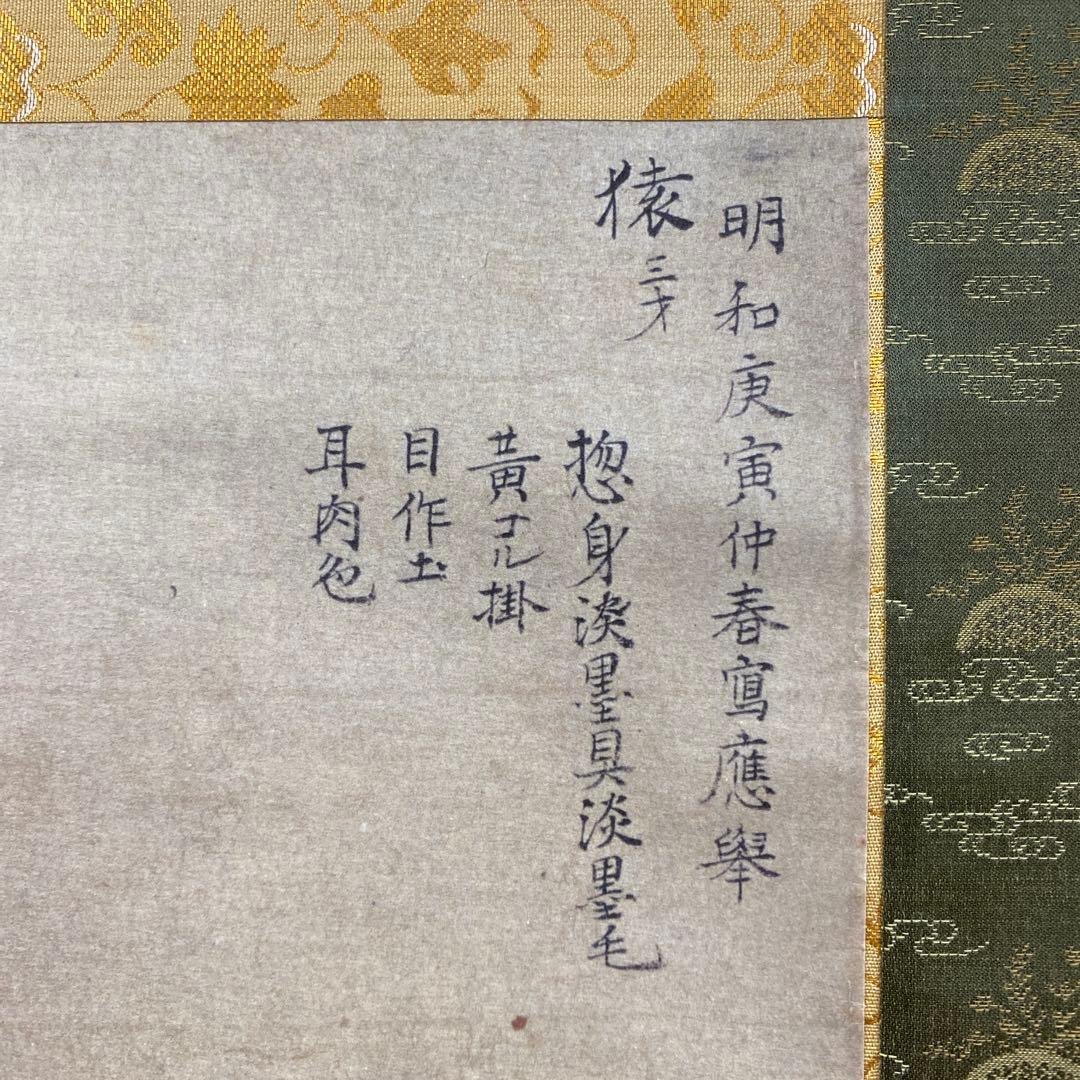 明和庚寅仲春寫應舉
猿三才
惣身淡墨具淡墨毛
黄コル掛
目作土
耳肉色